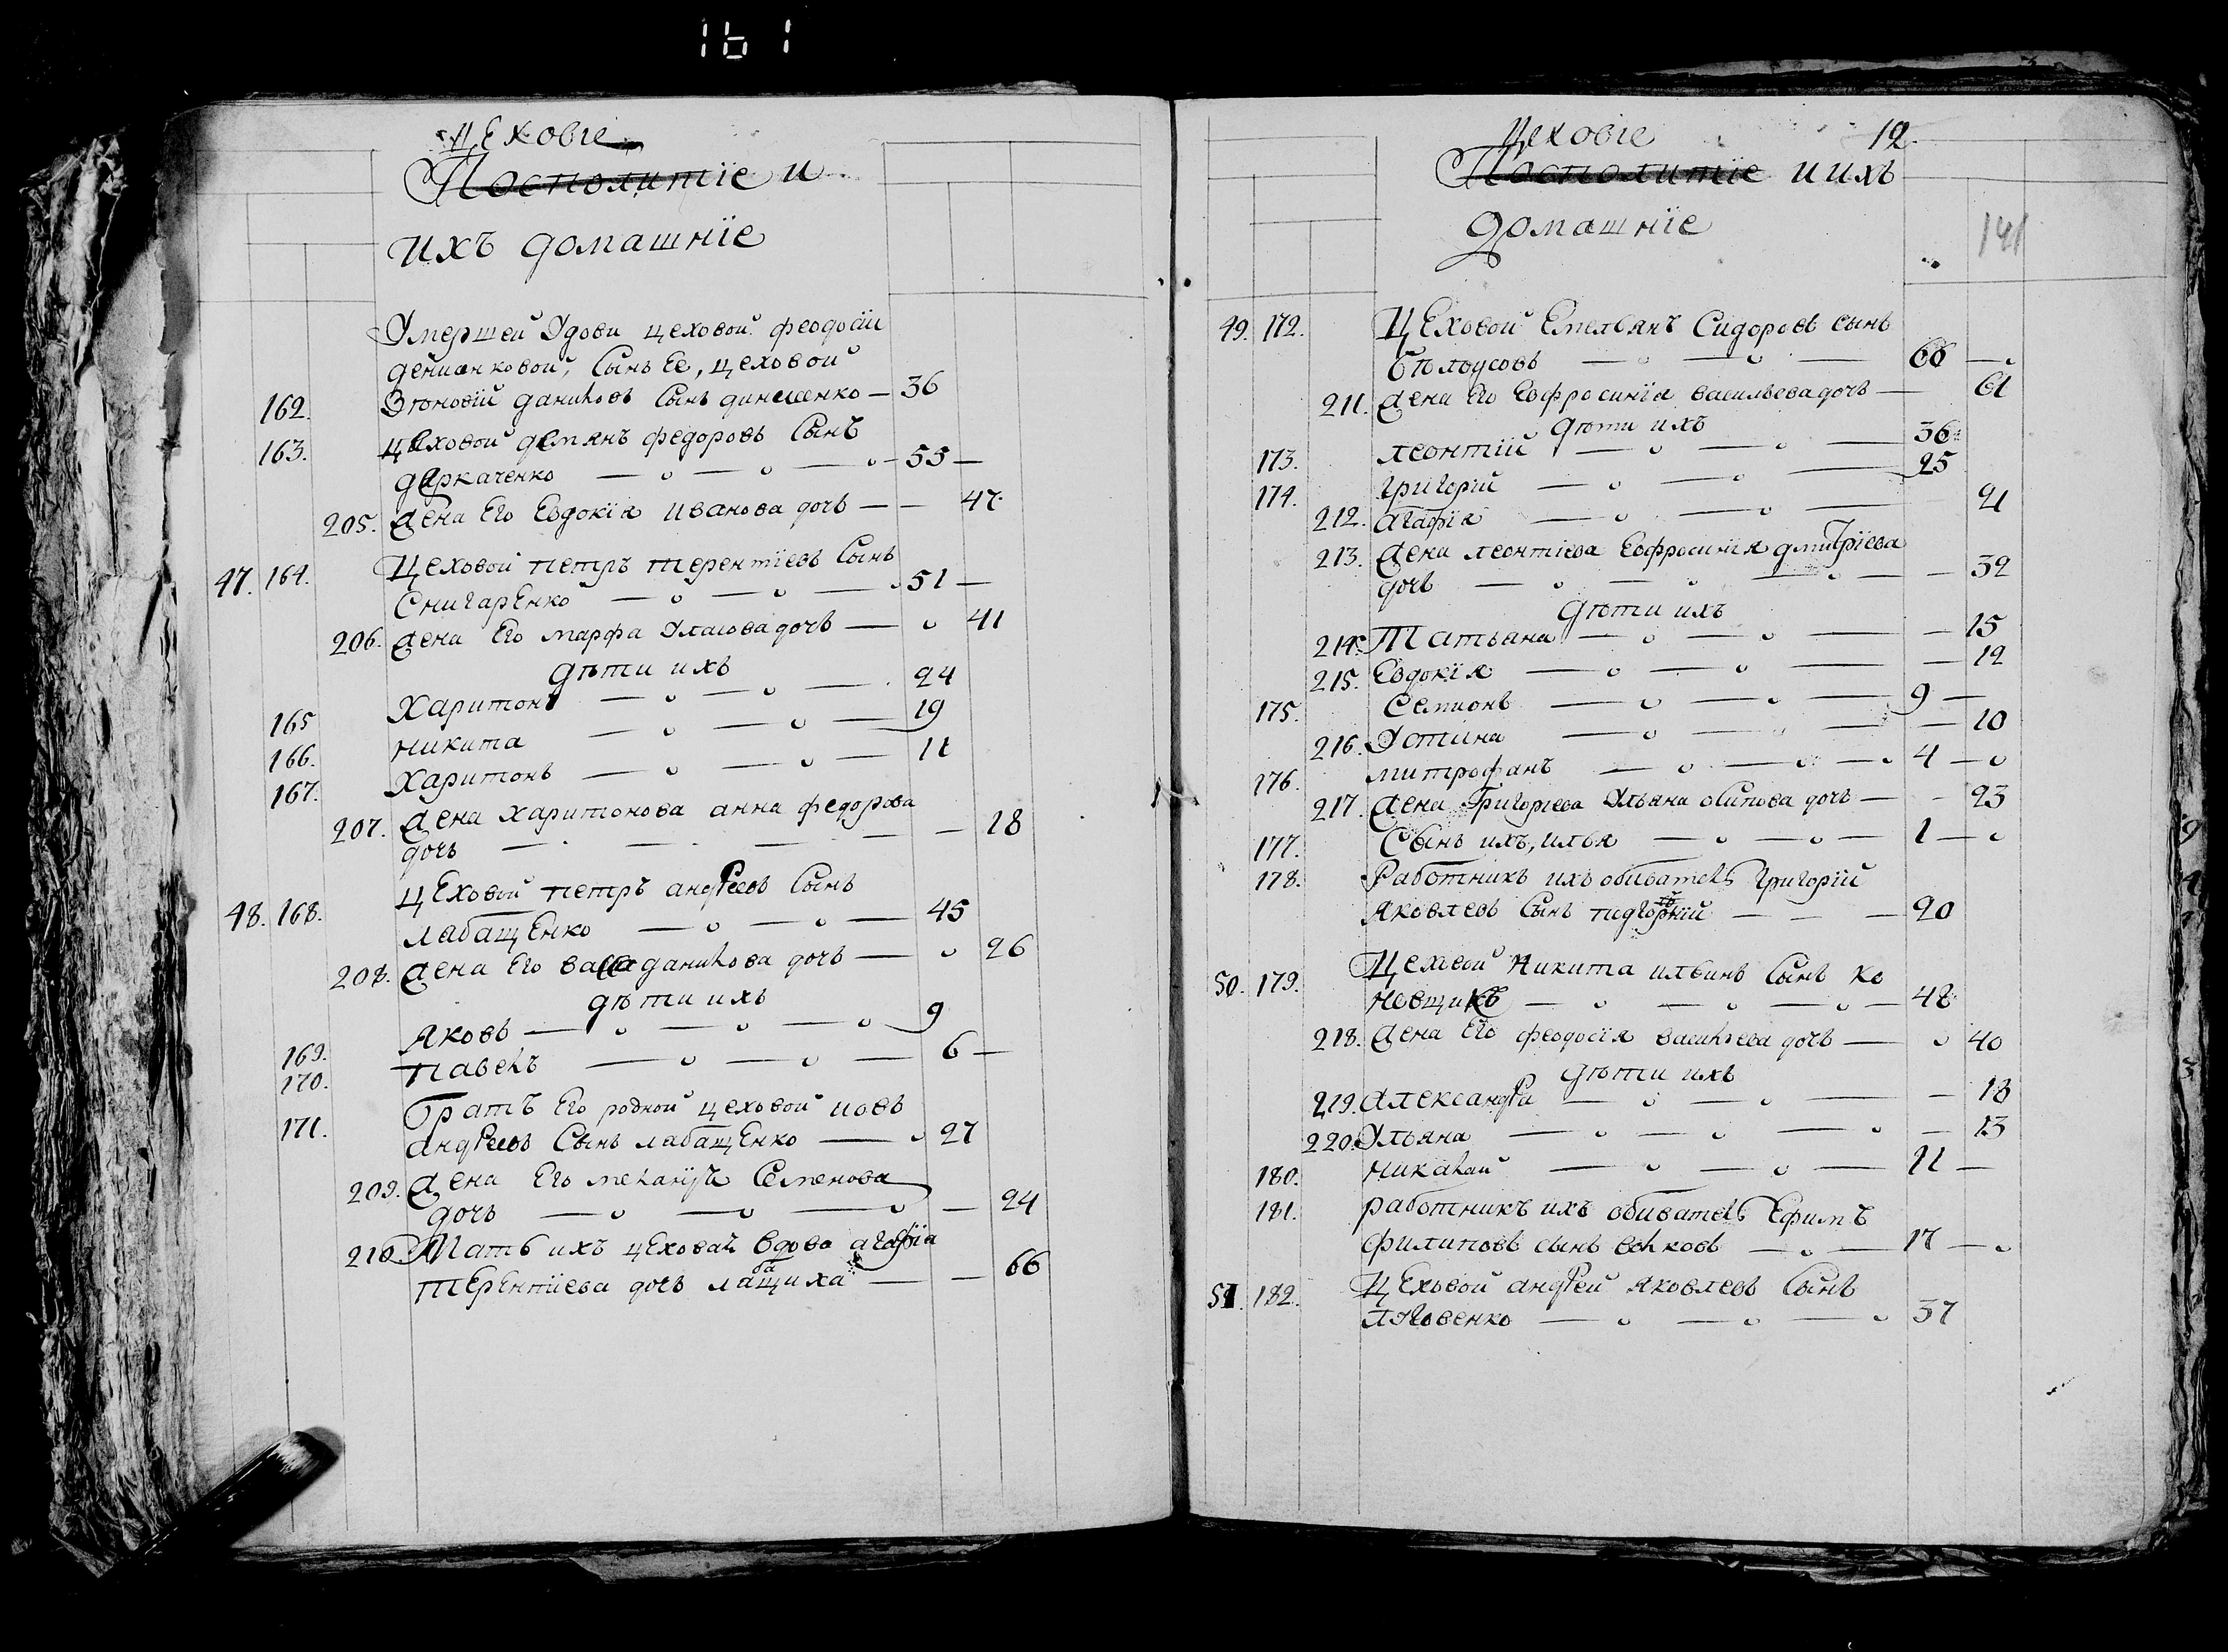 161
Цеховіе
Посполитіе и
ихъ домашніе
Умершей Удови цеховой феодосіи
сынъ Ее, цеховой
162. даниловъ Сынъ 36
163. цеховой демянъ федоровъ Сынъ
деркаченко 55
205. жена Его Евдокія иванова дочь 47
47. 164. Цеховой петръ терентіевъ Сынъ
СнигарЕнко 51
206. жена Его марфа Уласова дочь 41
дѣти ихъ
165 Харитонъ 24
166. никита 19
167. Харитонъ 11
207. жена харитонова анна федорова
дочь 18
48. 168. цЕховой петръ андреевъ Сынъ
лабащЕнко 45
208. жена Его васса данилова дочь 26
дѣти ихъ
169. Яковъ 9
170. павелъ 6
171. Братъ Его родной цеховой иовъ
андреевъ Сынъ лабащЕнко 27
209. жена Его меланія Семенова
дочь 24
210 Мать ихъ цЕховая вдова агафія
терентіева дочь лабащиха 66
Цеховіе 12.
Посполитіе и ихъ
домашніе
141
49. 172. ЦЕховой Емельянъ Сидоровъ сынъ
Белоусовъ 66
211. жена Его Евфросинія васильева дочь 61
дѣти ихъ
173. леонтій 36
174. григорій 25
212. агафія 21
213. жена леонтіева Евфросинія дмитріева
дочь 32
дѣти ихъ
214. Татьяна 15
215. Евдокія 12
175. Семионъ 9
216. Устина 10
176. митрофанъ 4
217. жена Григориева Ульяна осипова дочь 23
177. Сынъ ихъ, илья 1
178. Работникъ ихъ обиватель Григорій
Яковлевъ Сынъ 20
50. 179. Цеховой Никита ильинъ Сынъ ко
новщикъ 48
218. жена Его феодосія васильева дочь 40
дѣти ихъ
219. александра 18
220. Ульяна 13
180. никалай 11
181. работникъ ихъ обиватель Ефимъ
филиповъ сынъ волковъ 17
51. 182. ЦЕховой андрей яковлевъ Сынъ
37